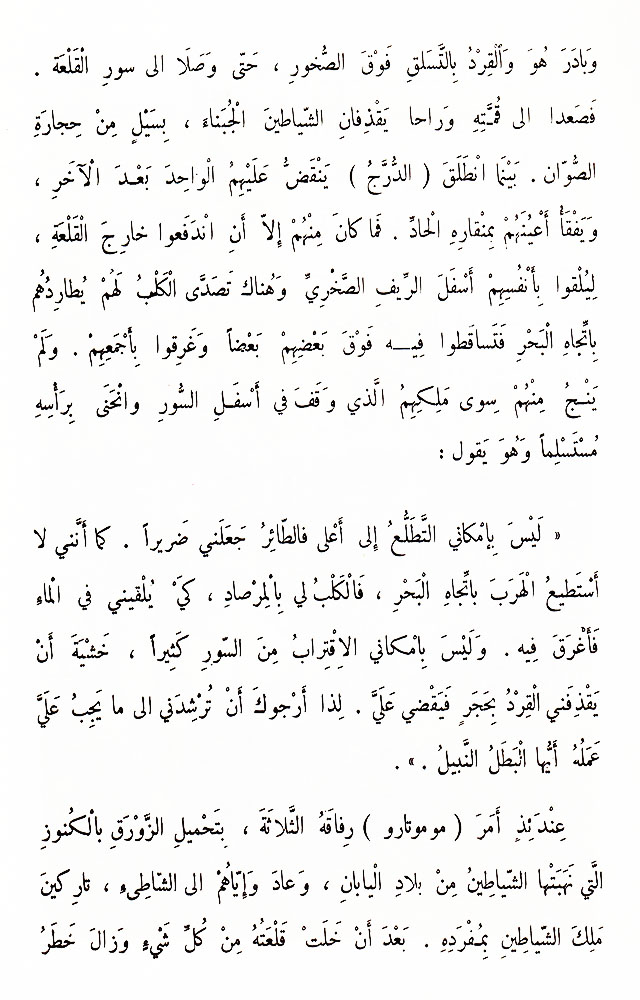 وَبادَرَ هُوَ وَٱلْقِرْدُ بِالتَّسَلقِ فَوْقَ الصُّخورِ ، حَتّى وَصَلَا الى سورِ الْقَلْعَة .
فَصَعدا الى قُمَّتِهِ وَراحا يَقْذِفانِ الشّياطينَ الْجُبَناءَ ، بِسَيْلٍ مِنْ حِجارَةِ
الصُّوّان . بَيْنَما انْطَلَقَ ( الدُّرَّجُ ) يَنْقَضُّ عَلَيْهِمُ الْواحِدَ بَعْـدَ الْآخَرِ ،
وَيَفْقَأُ أَعْيُنَهُمْ بِمِنْقارِهِ الْحادِّ . فَما كانَ مِنْهُمْ إِلاّ أَنِ انْدَفَعوا خارِجَ الْقَلْعَةِ ،
لِيُلْقوا بِأَنْفُسِهِمْ أَسْفَلَ الرّيفِ الصَّخْرِيِّ وَهُناكَ تَصَدَّى الْكَلْبُ لَهُمْ يُطارِدُهُم
بِاتِّجاهِ الْبَحْرِ فَتَساقَطوا فِيـــه فَوْقَ بَعْضِهِمْ بَعْضاً وَغَرِقوا بِأَجْمَعِهِمْ . وَلَمْ
يَنْـجُ مِنْهُمْ سِوى مَلِـكِهِمُ الَّذي وَقَفَ في أَسْفَـلِ السُّورِ وانْحَنَى بِرَأْسِهِ
مُسْتَسْلِماً وَهُوَ يَقول :
« لَيْسَ بِإمْكاني التَّطَلُّعُ إِلى أَعْلى فالطّائِرُ جَعَلَني ضَريراً . كما أَنَّني لا
أَسْتَطيعُ الْهَرَبَ باتِّجاهِ الْبَحْرِ ، فَالْكَلْبُ لي بِالْمِرْصادِ ، كَيْ يُلْقيني في الْماءِ
فَأَغْرَقَ فِيه . وَلَيْسَ بِامْكاني الاِقْتِرابُ مِنَ السّورِ كَثيراً ، خَشْيَةَ أَنْ
يَقْذِفَني الْقِرْدُ بِحَجَرٍ فَيَقْضي عَلَيَّ . لِذا أَرْجوكَ أَنْ تُرْشِدَني الى ما يَجِبُ عَلَيَّ
عَمَلُهُ أَيُّها الْبَطَلُ النَّبيلُ . » .
عِنْدَئِذٍ أَمَرَ ( موموتارو ) رِفاقَهُ الثَّلاثَةَ ، بِتَحْميلِ الزَّوْرَقِ بالْكُنوزِ
الَّتي نَهَبَتْها الشّياطينُ مِنْ بلادِ الْيابانِ ، وَعادَ وَإِيّاهُمْ الى الشّاطِىءِ ، تارِكينَ
مَلِكَ الشّياطينِ بِمُفْرَدِهِ . بَعْدَ أَنْ خَلَتْ قَلْعَتُهُ مِنْ كُلِّ شَيْءٍ وَزالَ خَطَرُ